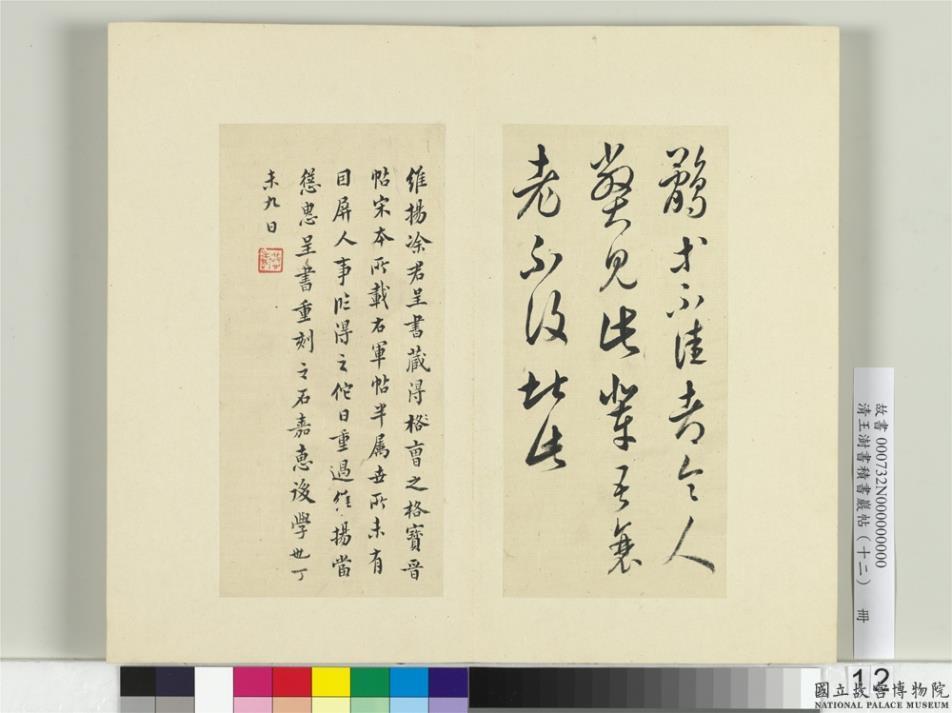 鷂才不佳都令人
弊見此輩吾衰
老不復此
維揚涂君呈書藏得格曹之格寶晉
帖宋本所載右軍帖半屬世所未有
目屏人事臨得之佗日重過維揚當
慫恿呈書重刻之石嘉惠後學也丁
未九日
故書 000732N000000000
清王澍書積書巖帖(十二) 冊
12
國立故宮博物院
NATIONAL PALACE MUSEUM